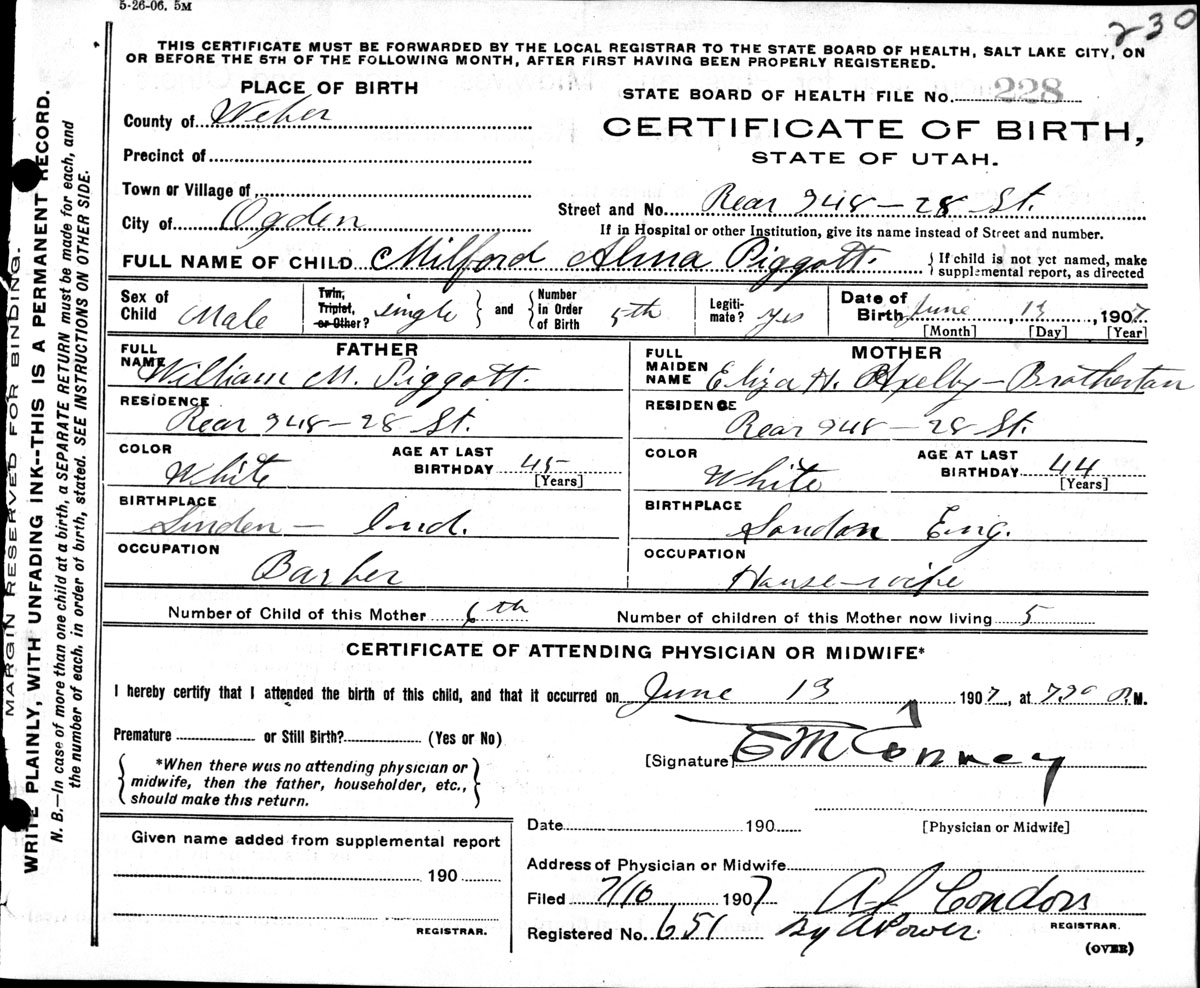 5-26-06. 5M
230
THIS CERTIFICATE MUST BE FORWARDED BY THE LOCAL REGISTRAR TO THE STATE BOARD OF HEALTH, SALT LAKE CITY, ON
OR BEFORE THE 5TH OF THE FOLLOWING MONTH, AFTER FIRST HAVING BEEN PROPERLY REGISTERED.
PLACE OF BIRTH
STATE BOARD OF HEALTH FILE No. 228
County of Weber
CERTIFICATE OF BIRTH,
STATE OF UTAH.
Precinct of
Town or Village of
City of Ogden
Street and No. Rear 948 - 28 St.
If in Hospital or other Institution, give its name instead of Street and number.
FULL NAME OF CHILD Milford Alma Piggott.
If child is not yet named, make
supplemental report, as directed
Sex of Child Male
Twin, Triplet, or Other? single and Number in Order of Birth 5th
Legiti-mate? yes
Date of Birth June 13, 1907.
[Month] [Day] [Year]
FATHER
FULL NAME William M. Piggott.
RESIDENCE
Rear 948 - 28 St.
COLOR White AGE AT LAST BIRTHDAY 45 [Years]
BIRTHPLACE
Linden - Ind.
OCCUPATION
Barber
MOTHER
FULL MAIDEN NAME Eliza H. Axelby - Brothertan
RESIDENCE
Rear 948 - 28 St.
COLOR White AGE AT LAST BIRTHDAY 44 [Years]
BIRTHPLACE
London Eng.
OCCUPATION
House-wife
Number of Child of this Mother 6th
Number of children of this Mother now living 5
CERTIFICATE OF ATTENDING PHYSICIAN OR MIDWIFE*
I hereby certify that I attended the birth of this child, and that it occurred on June 13 1907, at 7.30 P.M.
Premature or Still Birth? (Yes or No)
[Signature] E M Conney
*When there was no attending physician or
midwife, then the father, householder, etc.,
should make this return.
Date 190
[Physician or Midwife]
Given name added from supplemental report
190
REGISTRAR.
Address of Physician or Midwife
Filed 7/10 1907 A J Condon
REGISTRAR.
Registered No. 651 By A Power.
(OVER)
MARGIN RESERVED FOR BINDING.
WRITE PLAINLY, WITH UNFADING INK--THIS IS A PERMANENT RECORD.
N. B.—In case of more than one child at a birth, a SEPARATE RETURN must be made for each, and
the number of each, in order of birth, stated. SEE INSTRUCTIONS ON OTHER SIDE.